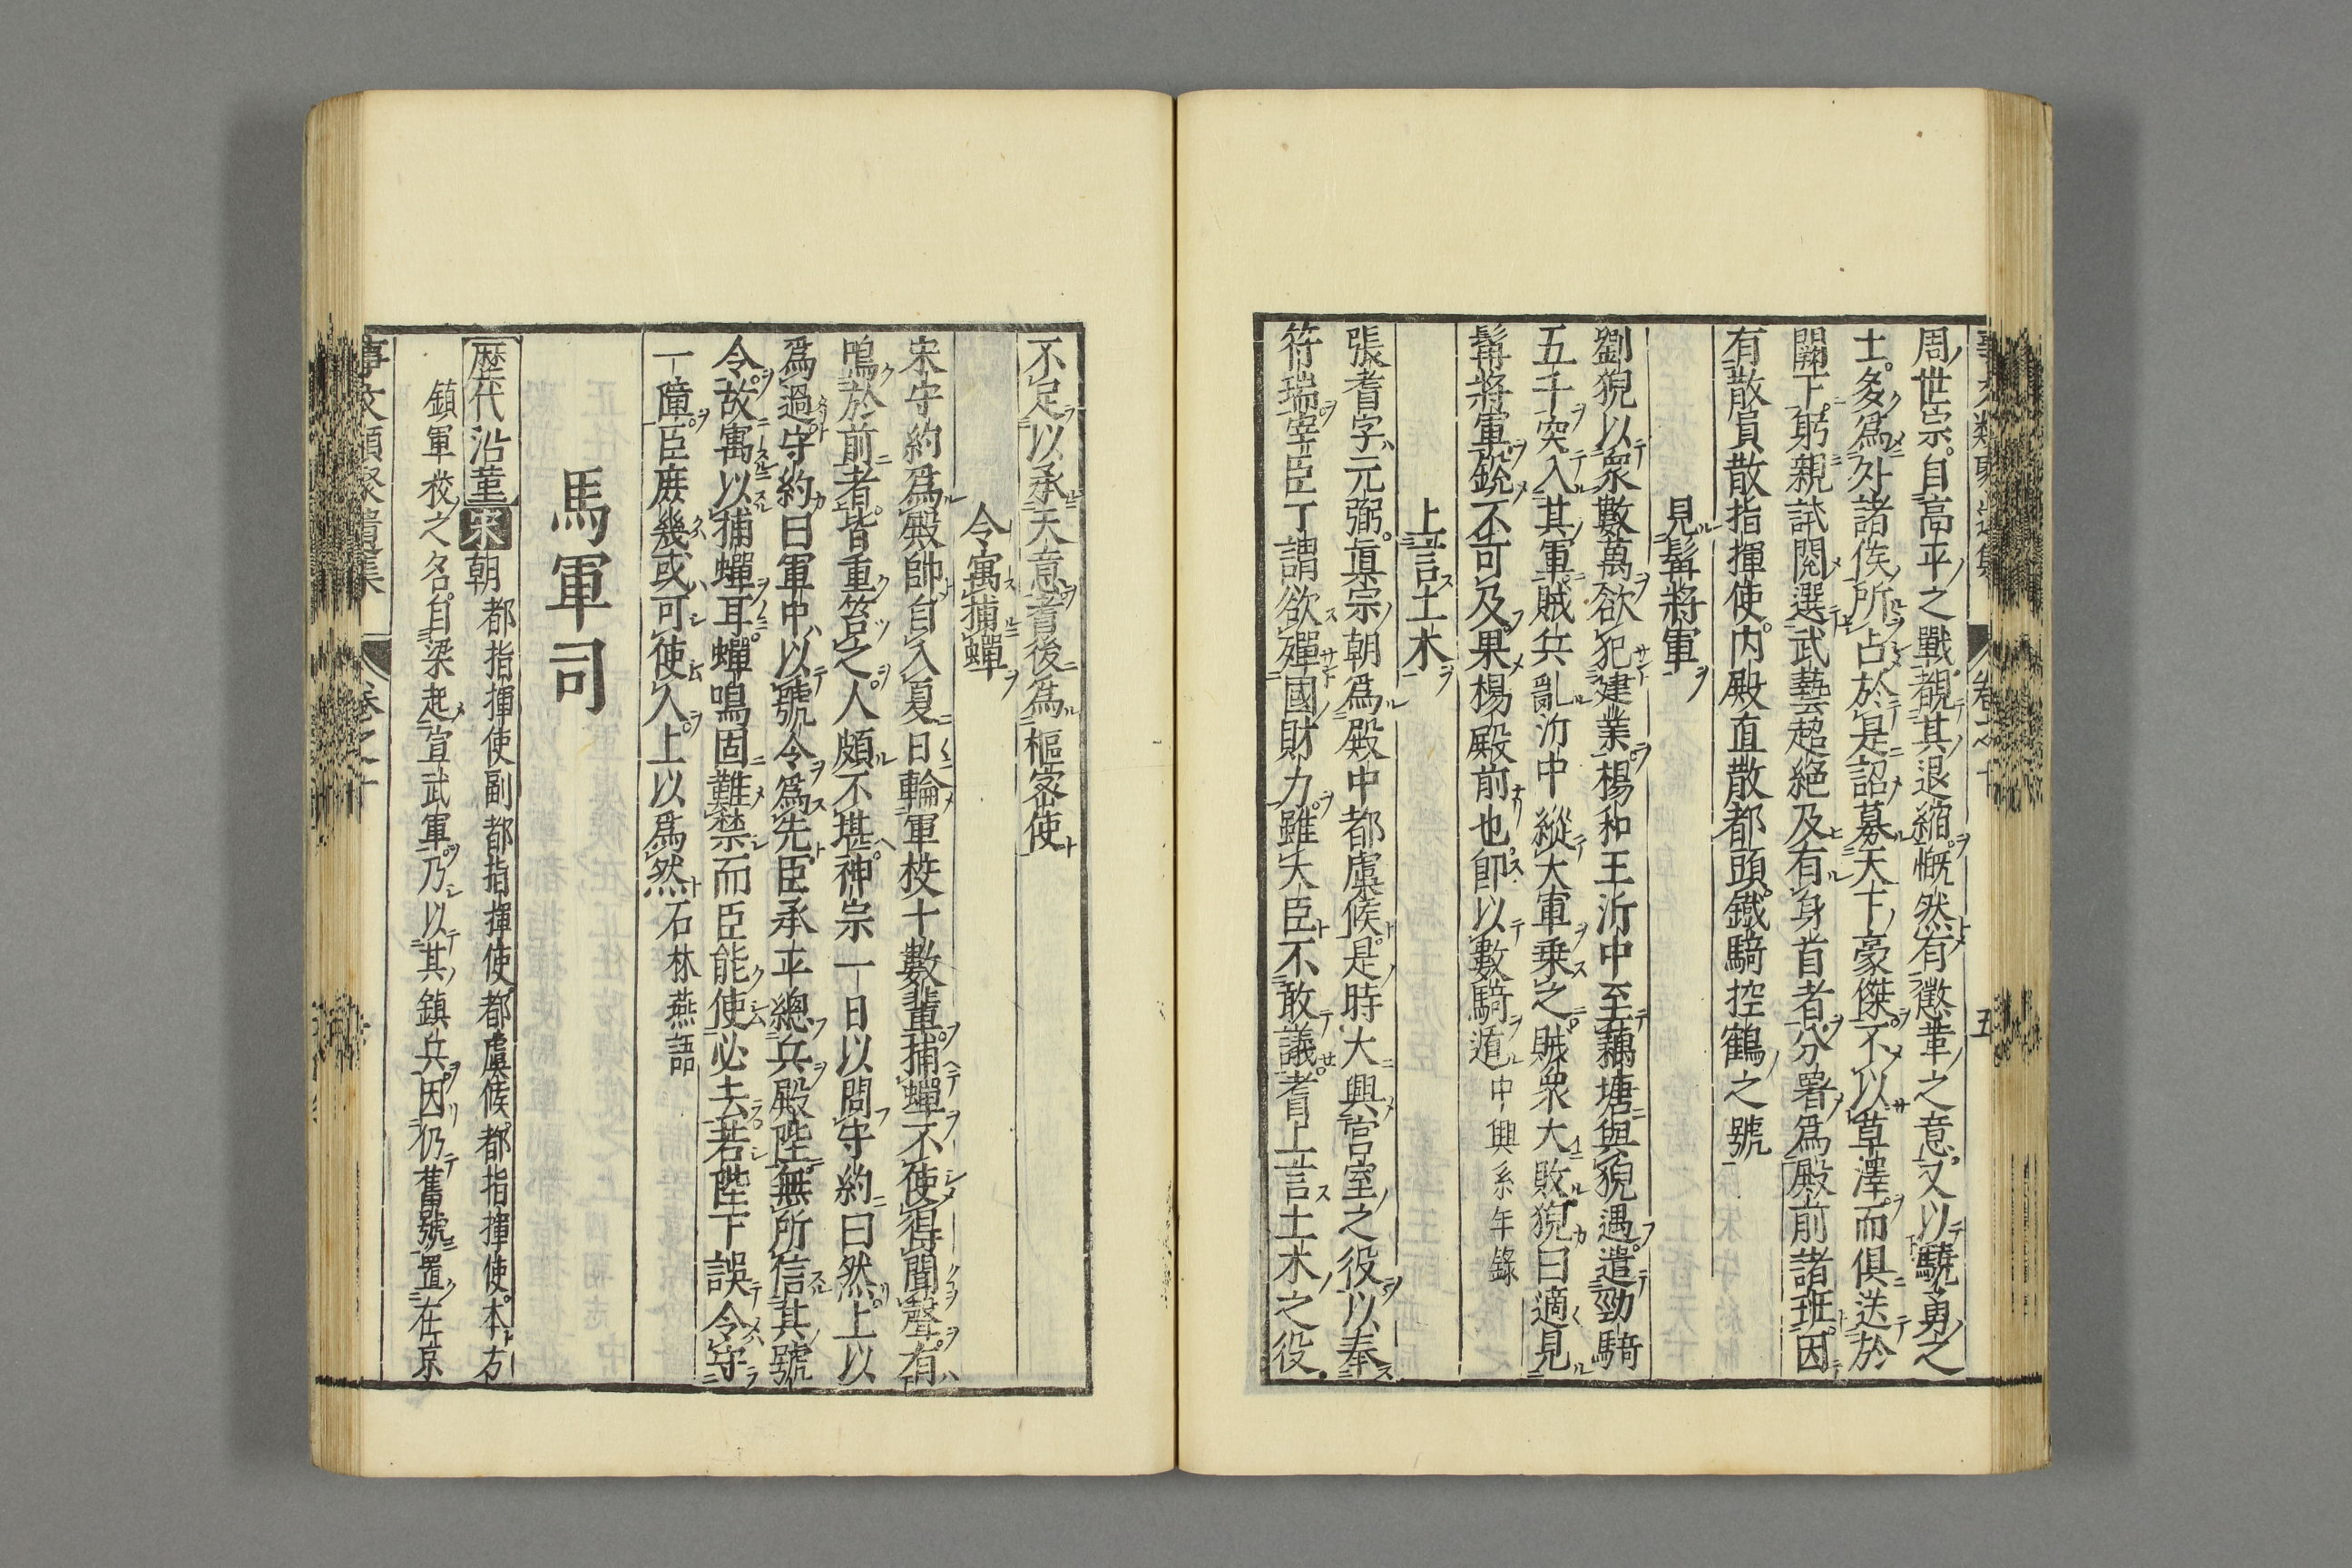 周世宗自高平之戰覩其退縮慨然有懲革之意又以驍勇之
士多爲外諸侯所占於是詔募天下豪傑不以草澤而俱送於
闕下躬親試閱選武藝超絶及有身首者分署爲殿前諸班因
有散員散指揮使内殿直散都頭鐵騎控鶴之號
見髯將軍
劉猊以衆數萬欲犯建業楊和王沂中至藕塘與猊遇遣勁騎
五千突入其軍賊兵亂沂中縱大軍乗之賊衆大敗猊曰適見
髯將軍銳不可及果楊殿前也即以數騎遁 中興系年錄
上言土木
張耆字元弼眞宗朝爲殿中都虞候是時大興宫室之役以奉
符瑞宰臣丁謂欲殫國財力雖大臣不敢議耆上言土木之役
不足以承天意耆後爲樞密使
令寓捕蟬
宋守約爲殿帥自入夏日輪軍校十數輩捕蟬不使得聞聲有
鳴於前者皆重笞之人頗不堪神宗一日以問守約曰然上以
爲過守約曰軍中以號令爲先臣承平總兵殿陛無所信其號
令故寓以捕蟬耳蟬鳴固難禁而臣能使必去若陛下誤令守
一障臣庶幾或可使人上以爲然 石林燕語
馬軍司
歷代沿革 宋朝 都指揮使副都指揮使都虞候都指揮使本方
鎮軍校之名自梁起宣武軍乃以其鎮兵因仍舊號置在京